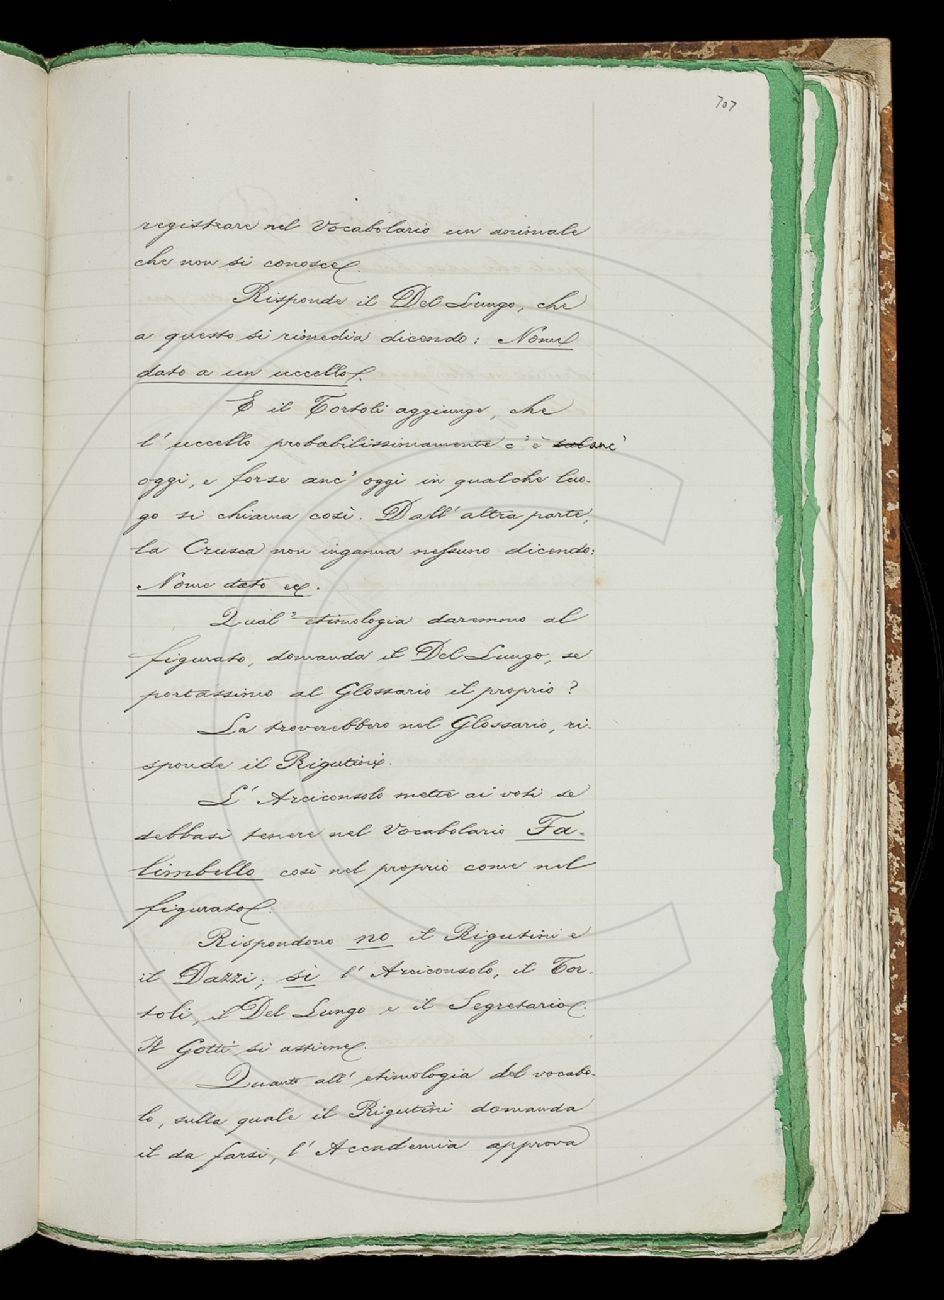 707
registrare nel Vocabolario un animale
che non si conosce.
Risponde il Del Lungo, che
a questo si rimedia dicendo: Nome
dato a un uccello.
E il Tortoli aggiunge, che
l' uccello probabilissimamente c' è anc'
oggi, e forse anc' oggi in qualche luo-
go si chiama così. Dall' altra parte,
la Crusca non inganna nessuno dicendo:
Nome dato ec.
Qual' etimologia daremmo al
figurato, domanda il Del Lungo, se
portassimo al Glossario il proprio?
La troverebbero nel Glossario, ri-
sponde il Rigutini.
L' Arciconsolo mette ai voti se
debbasi tenere nel Vocabolario Fa-
limbello così nel proprio come nel
figurato.
Rispondono no il Rigutini e
il Dazzi; sì l' Arciconsolo, il Tor-
toli, il Del Lungo e il Segretario.
Il Gotti si astiene.
Quanto all' etimologia del vocabo-
lo, sulla quale il Rigutini domanda
il da farsi, l' Accademia approva